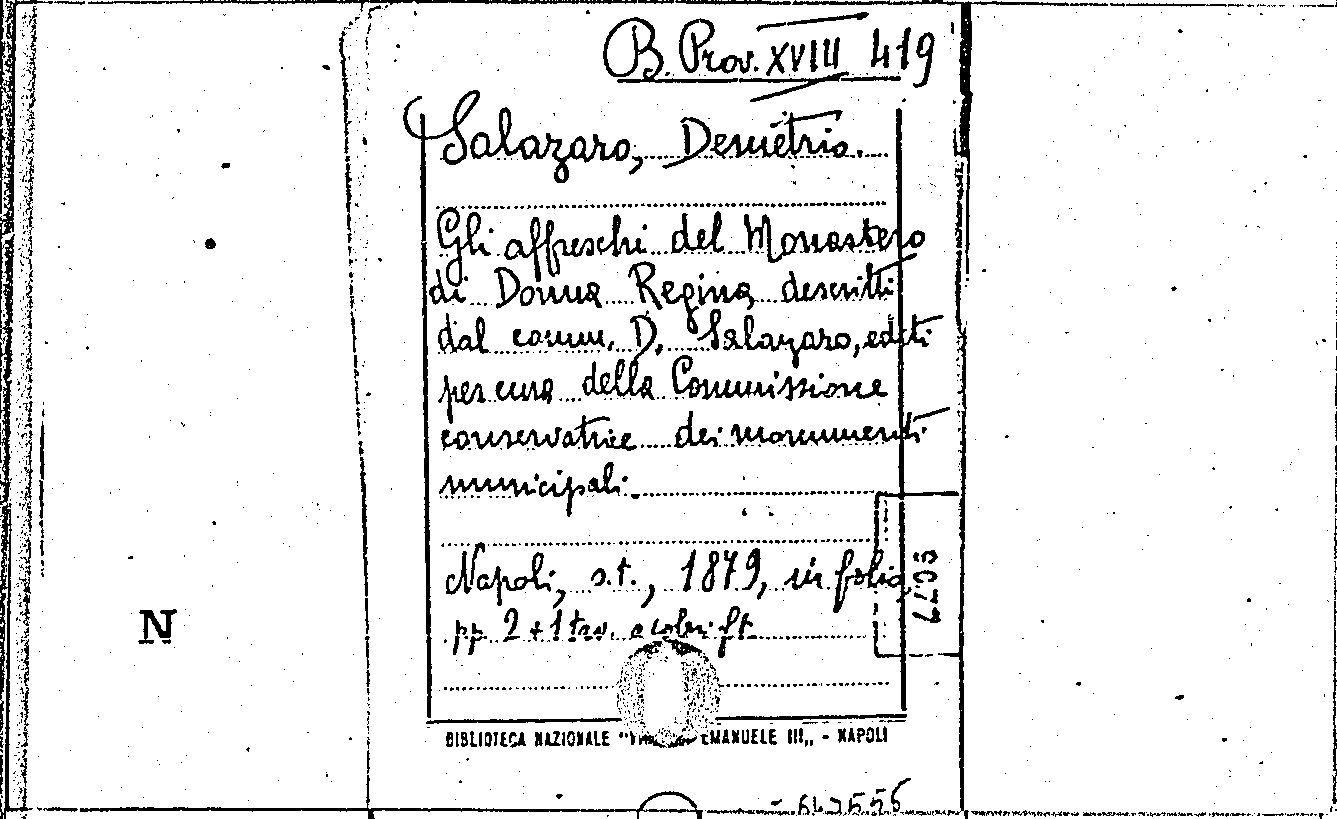 B. Prov. XVIII 419
Salazaro, Demetrio.
Gli affreschi del Monastero
di Donna Regina descritti
dal comm. D. Salazaro, editi
per cura della Commissione
conservatrice dei monumenti
municipali.
Napoli, s.t., 1879, in folio,
pp. 2 + 1 tav. a colori f.t.
N
BIBLIOTECA NAZIONALE " EMANUELE III„ - NAPOLI